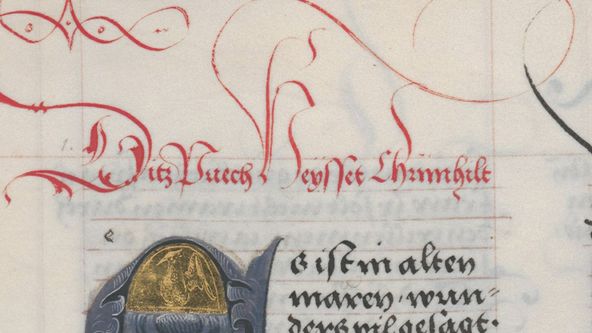 Ditz Puech Heysset Chrimhilt
e
s ist in alten
maren · wun-
ders vil gesagt ·